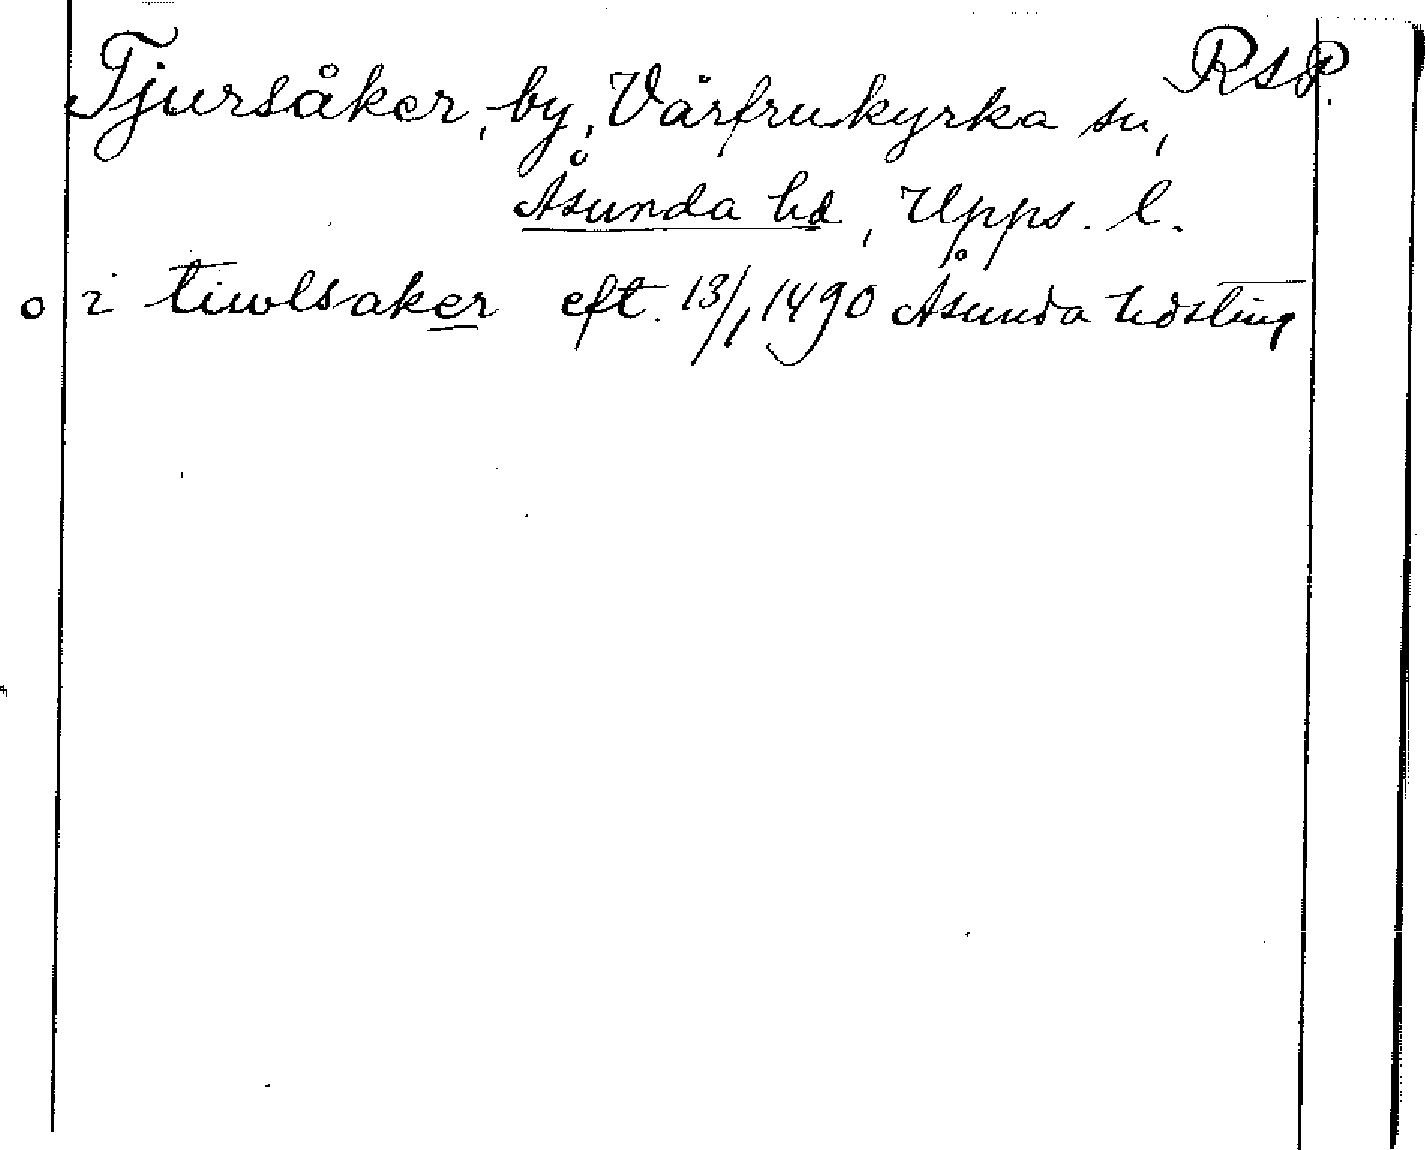 RSP.
Tjursåker, by, Vårfrukyrka sn,
Åsunda hd, Upps. l.
o i tiwlsaker eft. 13/1 1490 Åsunda hdsting